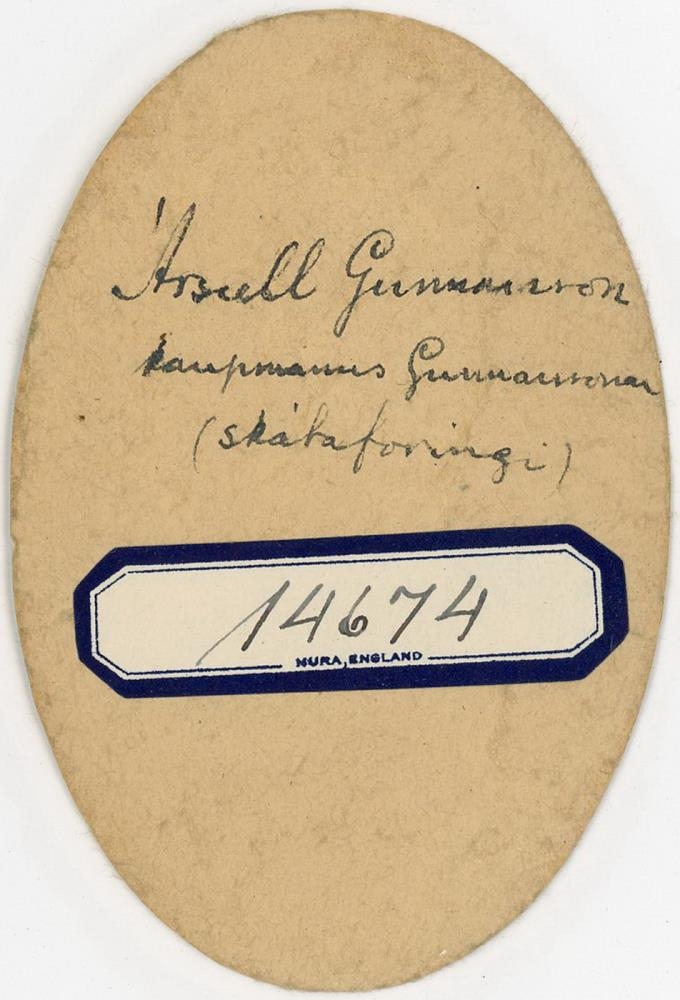 Ársæll Gunnarsson
kaupmanns Gunnarssonar
(skátaforingi)
14674
NURA, ENGLAND